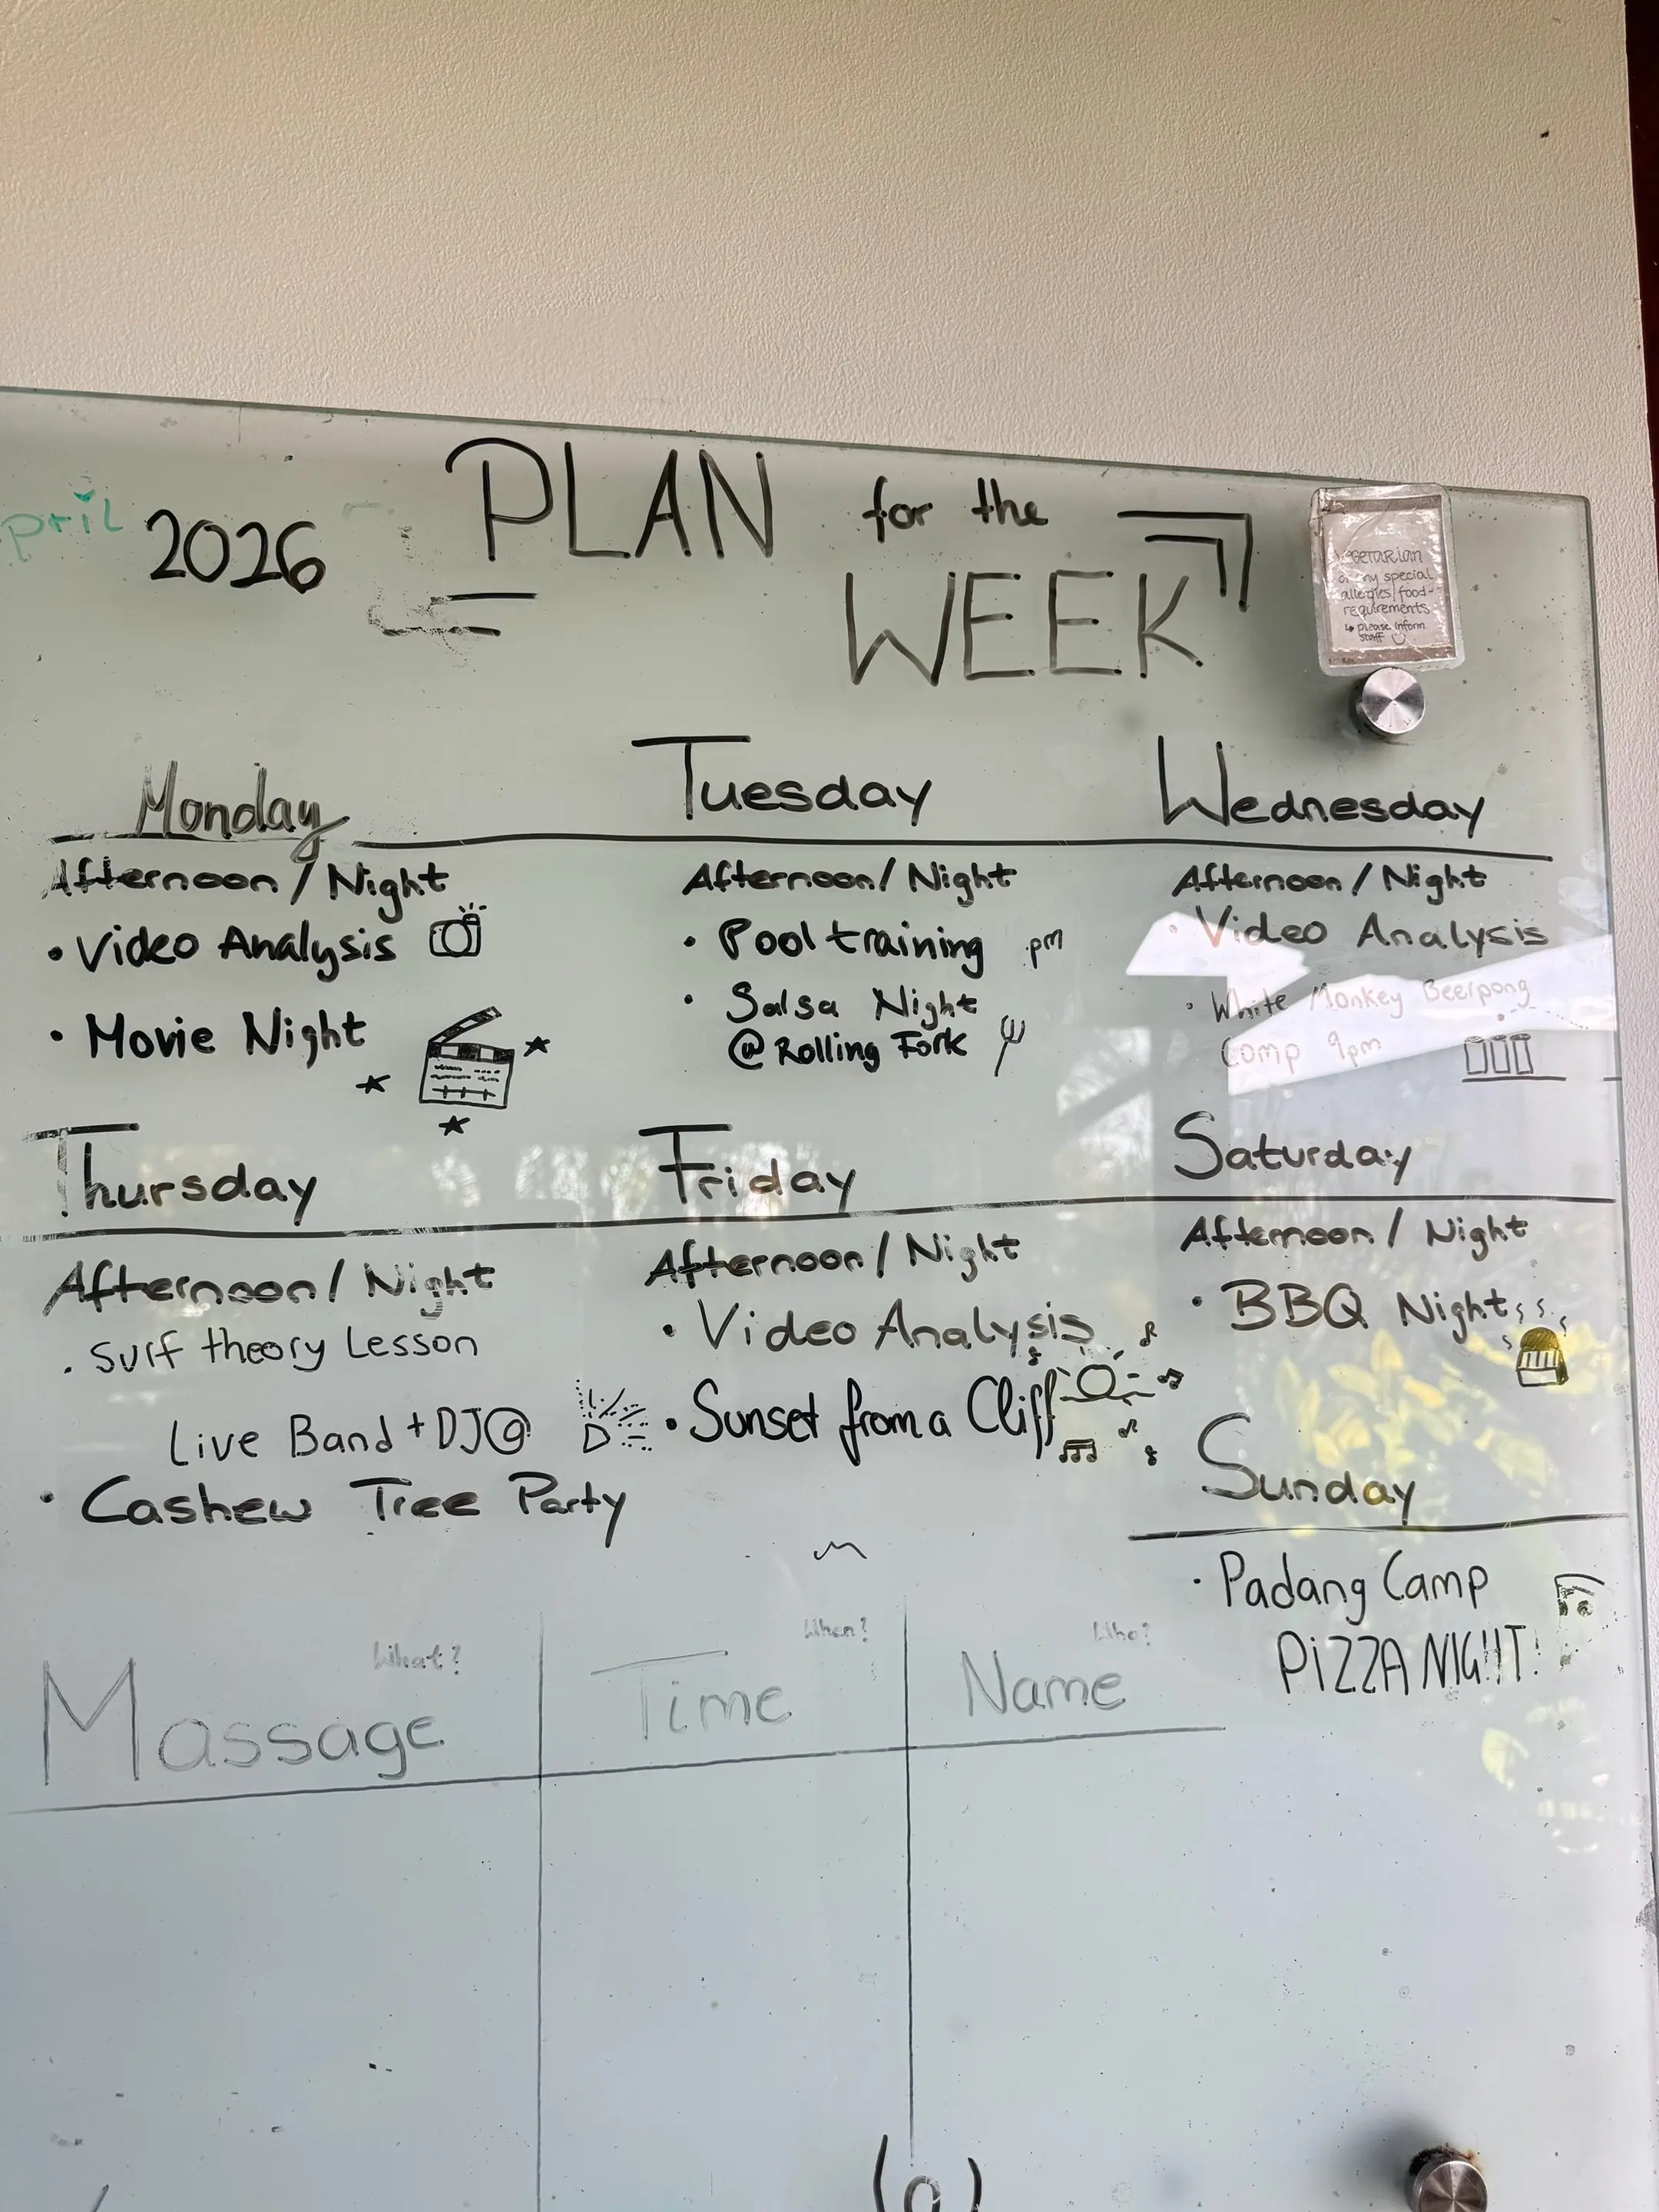 pril 2026
PLAN for the
WEEK
Vegetarian
or any special
allergies/food-
requirements
↳ please inform
staff
Monday
Afternoon / Night
• Video Analysis
• Movie Night
Tuesday
Afternoon / Night
• Pool training pm
• Salsa Night
@ Rolling Fork
Wednesday
Afternoon / Night
• Video Analysis
• White Monkey Beerpong
Comp 9pm
Thursday
Afternoon / Night
• Surf theory Lesson
Live Band + DJ@
• Cashew Tree Party
Friday
Afternoon / Night
• Video Analysis
• Sunset from a Cliff
Saturday
Afternoon / Night
• BBQ Night
Sunday
• Padang Camp
PIZZA NIGHT!
What? When? Who?
Massage Time Name